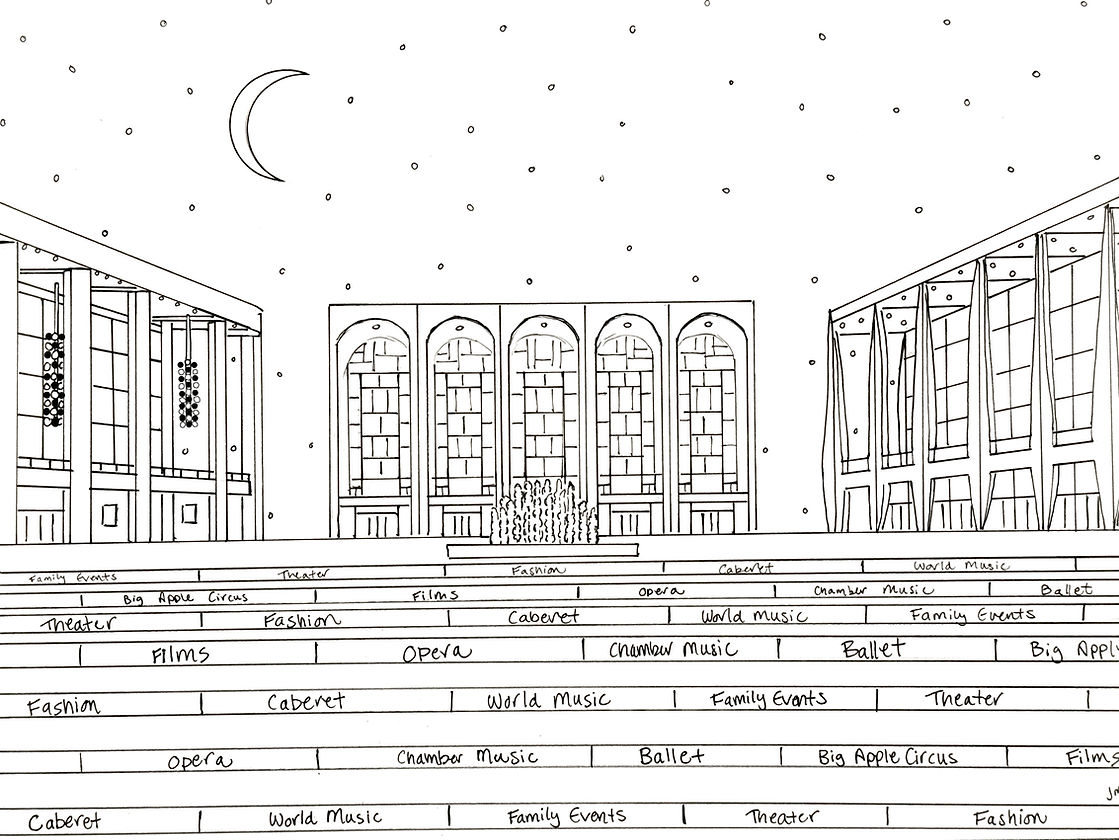 Family Events Theater Fashion Caberet World Music
Big Apple Circus Films Opera Chamber Music Ballet
Theater Fashion Caberet World Music Family Events
Films Opera Chamber Music Ballet Big
Fashion Caberet World Music Family Events Theater
Opera Chamber Music Ballet Big Apple Circus Films
Caberet World Music Family Events Theater Fashion